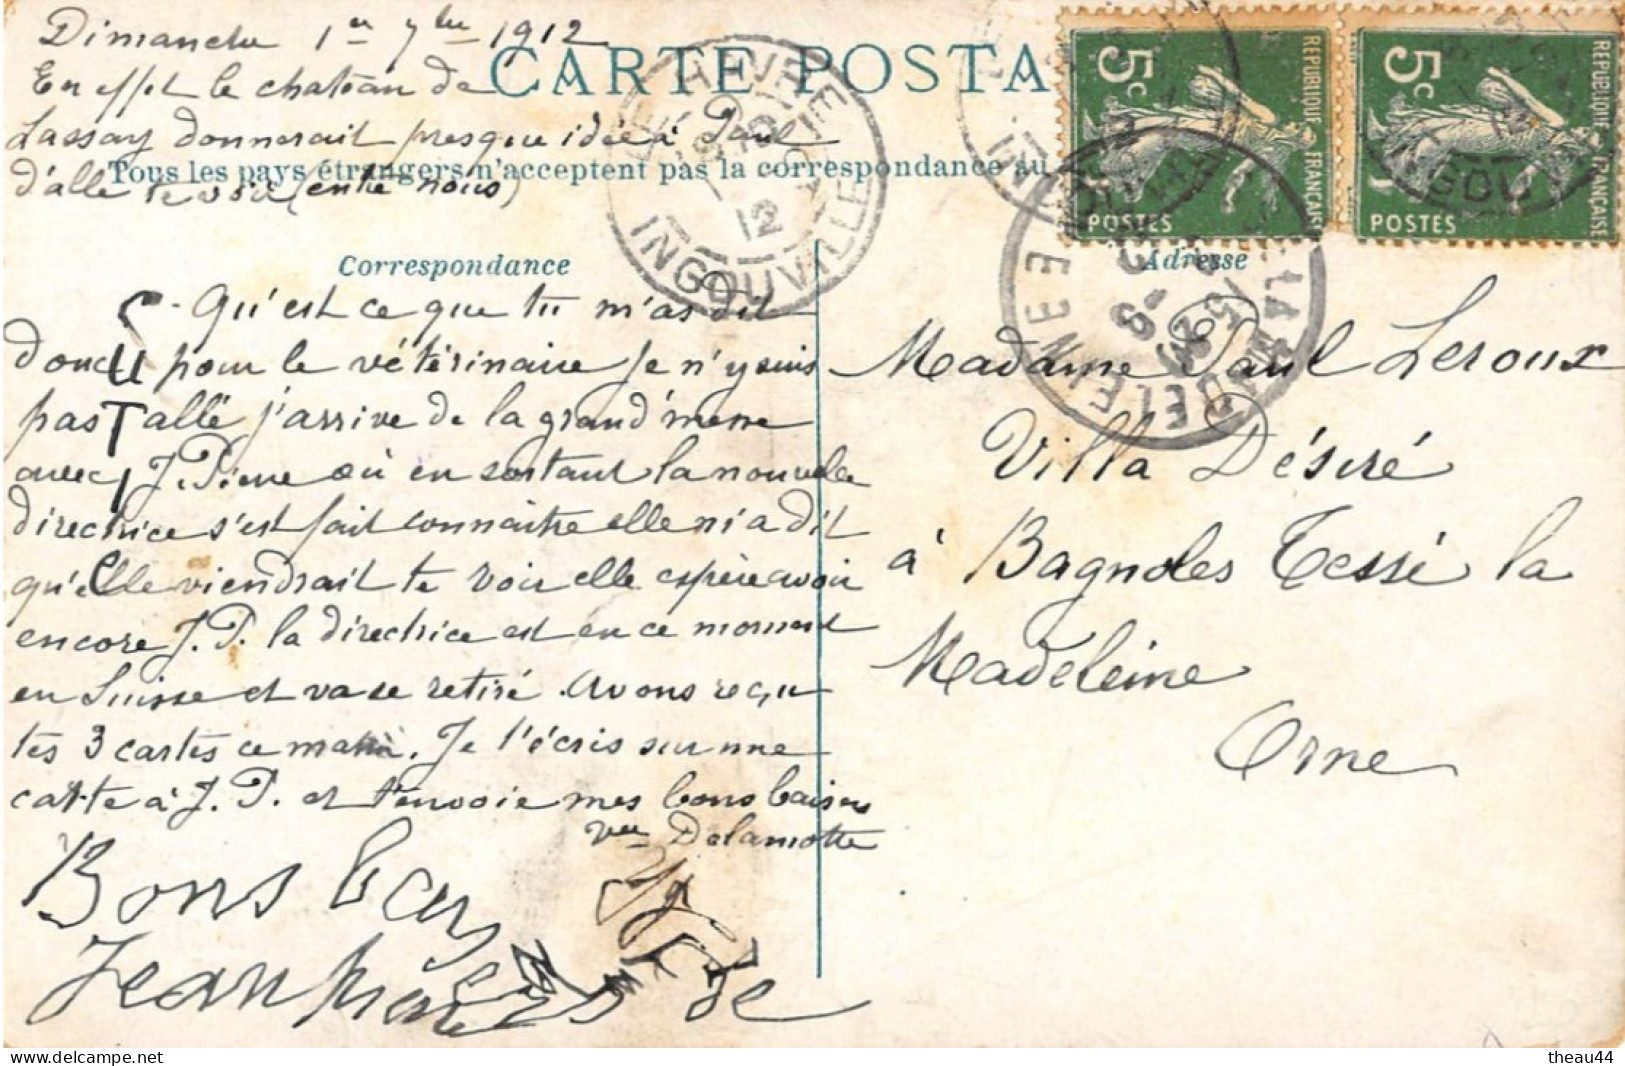 Dimanche 1er 7bre 1912
CARTE POSTA
En effet le chateau de
Lassay donnerait presque idée à Paul
d'alle te voir (entre nous)
Tous les pays étrangers n'acceptent pas la correspondance au
LE HAVRE
12
INGOUVILLE
5c
REPUBLIQUE FRANÇAISE
POSTES
5c
REPUBLIQUE FRANÇAISE
POSTES
Correspondance
Adresse
Qu'est ce que tu m'as dit
donc pour le vétérinaire je n'y suis
pas allé j'arrive de la grand'messe
avec J. Pierre où en sortant la nouvelle
directrice s'est fait connaitre elle m'a dit
qu'elle viendrait te voir elle espère avoir
encore J. P. la directrice est en ce moment
en Suisse et va se retiré. Avons reçu
tes 3 cartes ce matin. Je t'écris sur une
carte à J. P. et t'envoie mes bons baisers
Vve Delamotte
Bons
Jean
Madame Paul Leroux
Villa Désiré
à Bagnoles Tessé la
Madeleine
Orne
theau44